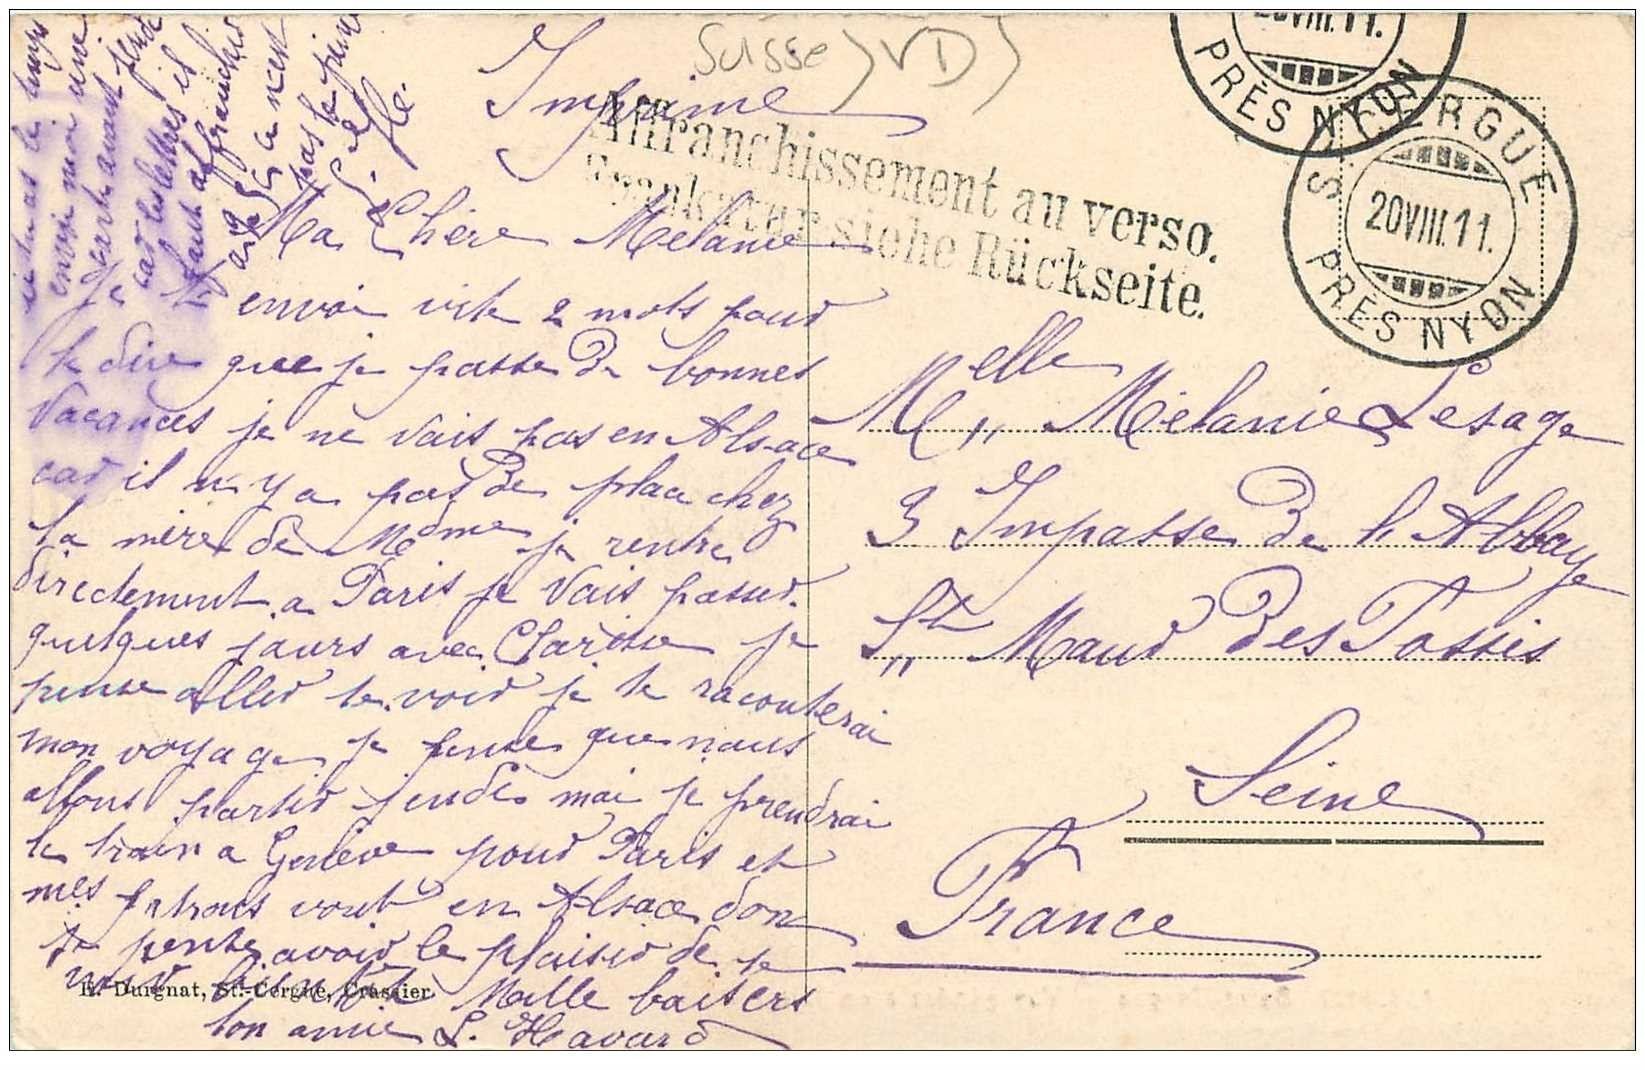 Suisse (VD)
Imprimé
Affranchissement au verso.
Frankatur siehe Rückseite.
PRÈS NYON
20 VIII. 11.
ST. CERGUE
20 VIII. 11.
PRÈS NYON
si tu as le temps
envoi moi une
carte avant jeudi
car les lettres il
faut affranchir
a 25 ce n'est
pas la peine
Ma Chère Mélanie
Je t'envoi vite 2 mots pour
te dire que je passe de bonnes
vacances je ne vais pas en Alsace
car il n'y a pas de place chez
la mère de Mdme je rentre
directement a Paris je vais passer
quelques jours avec Clarisse je
pense aller te voir je te raconterai
mon voyage je pense que nous
allons partir jeudi moi je prendrai
le train a Genève pour Paris et
mes patrons vont en Alsace don
je pense avoir le plaisir de te
voir Mille baisers
ton amie L. Havard
E. Durgnat, St.-Cergue, Crassier
Melle Mélanie Lesage
3 Impasse de l'Abbaye
St Maur des Fossés
Seine
France